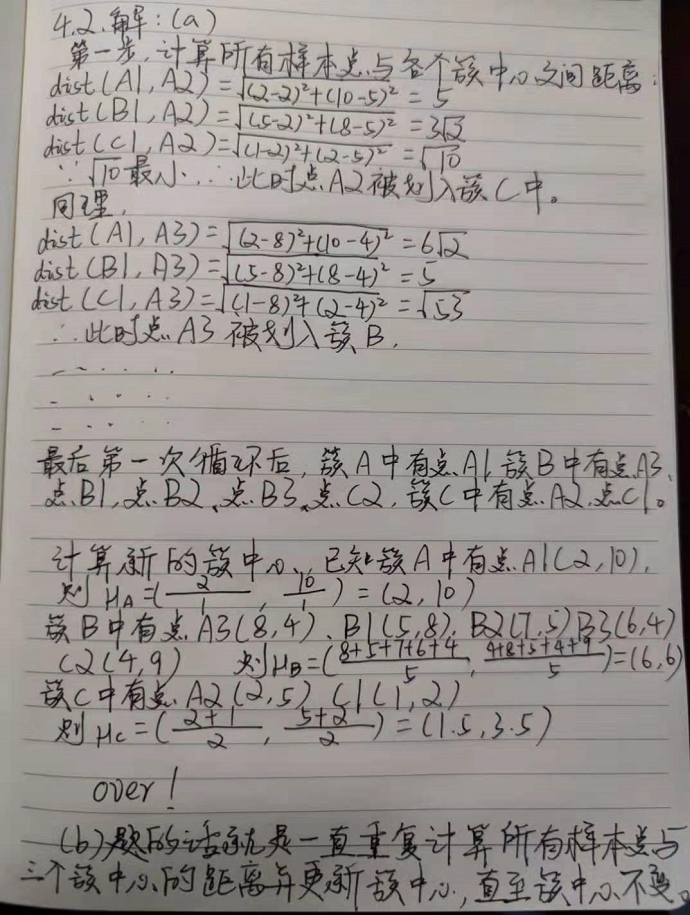 4.2.解:(a)
第一步,计算所有样本点与各个簇中心之间距离:
dist(A1,A2)=√(2-2)²+(10-5)² = 5
dist(B1,A2)=√(5-2)²+(8-5)² = 3√2
dist(C1,A2)=√(1-2)²+(2-5)² = √10
∵√10最小,∴此时点A2被划入簇C中。
同理,
dist(A1,A3)=√(2-8)²+(10-4)² = 6√2
dist(B1,A3)=√(5-8)²+(8-4)² = 5
dist(C1,A3)=√(1-8)²+(2-4)² = √53
∴此时点A3被划入簇B.
......
......
......
最后第一次循环后,簇A中有点A1,簇B中有点A3、
点B1,点B2、点B3、点C2,簇C中有点A2,点C1。
计算新的簇中心,已知簇A中有点A1(2,10),
则μA=(2/1, 10/1)=(2,10)
簇B中有点A3(8,4)、B1(5,8),B2(7,5)B3(6,4)
C2(4,9) 则μB=(8+5+7+6+4/5, 4+8+5+4+9/5)=(6,6)
簇C中有点A2(2,5) C1(1,2)
则μC=(2+1/2, 5+2/2)=(1.5,3.5)
over!
(b)题的话就是一直重复计算所有样本点与
三个簇中心的距离并更新簇中心,直至簇中心不变。